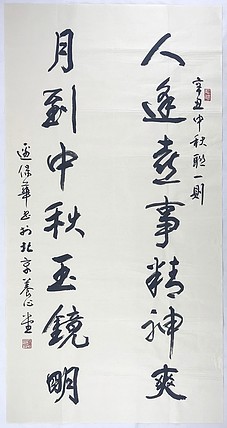 辛丑中秋联一则
人逢喜事精神爽
月到中秋玉镜明
边保华书于北京养心堂